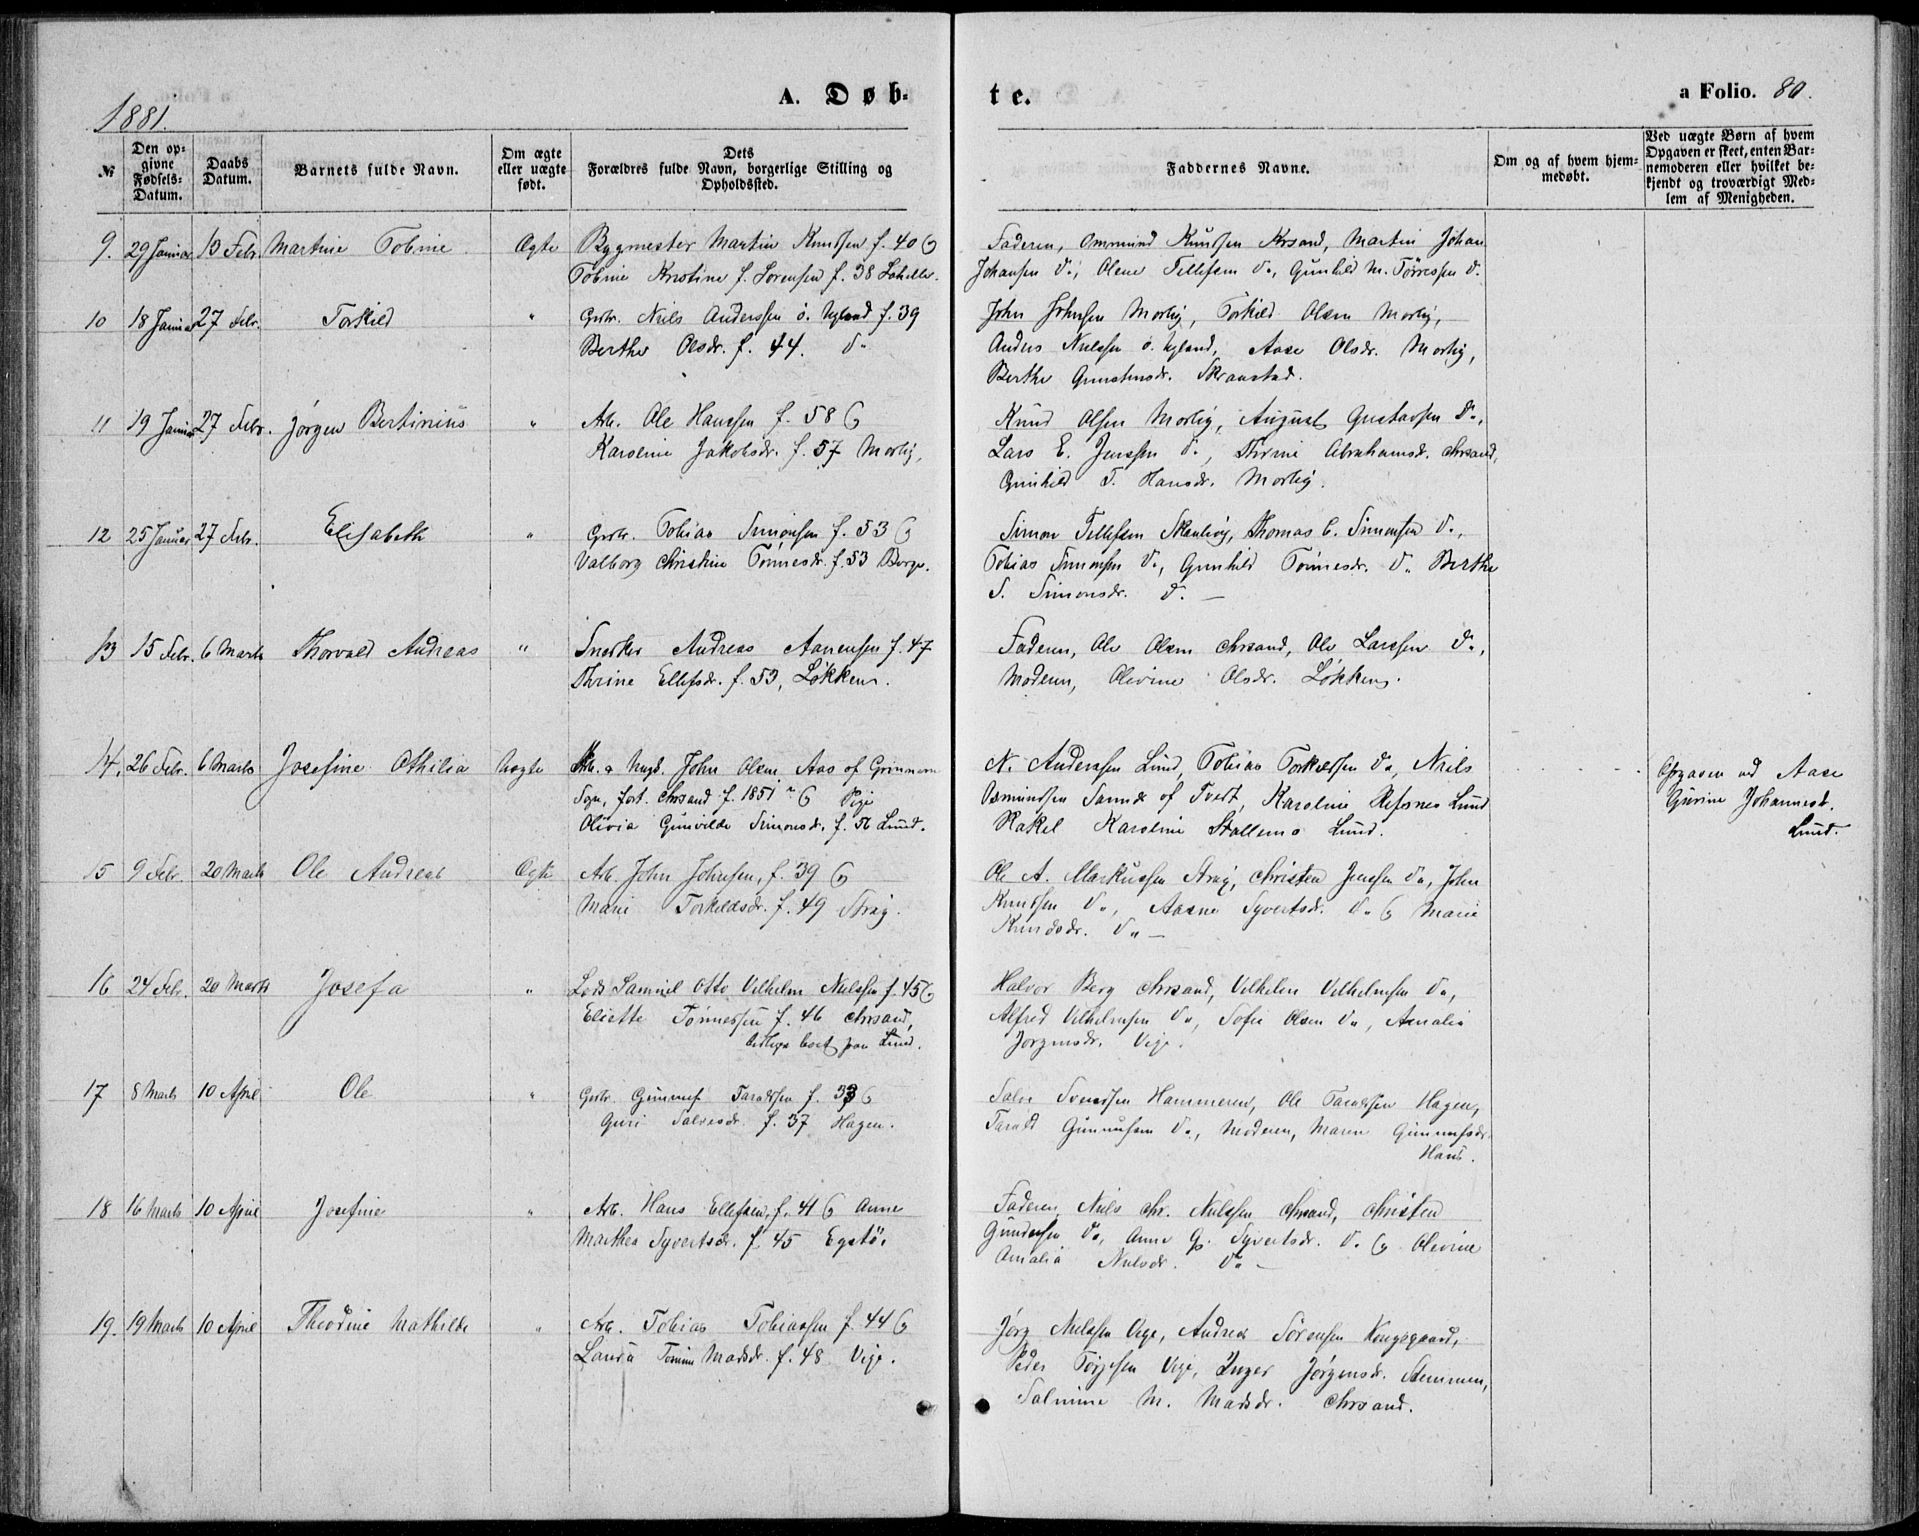 1881.
A. Døb-
te.
a Folio. 80.
№
Den op-
givne
Fødsels-
Datum.
Daabs
Datum.
Barnets fulde Navn.
Om ægte
eller uægte
født.
Dets
Forældres fulde Navn, borgerlige Stilling og
Opholdssted.
Faddernes Navne.
Om og af hvem hjem-
medøbt.
Ved uægte Børn af hvem
Opgaven er skeet, enten Bar-
nemoderen eller hvilket be-
kjendt og troværdigt Med-
lem af Menigheden.
9. 29 Januar 13 Febr. Martine Tobine Ægte Bygmester Martin Knudsen f. 40 &
Tobine Kristine f. Sørensen f. 38
Faderen, Ommund Knudsen Krsand, Martin Johan
Johansen Do, Olene Tellefsen Do, Gunhild M. Tørresen Do
10 18 Januar 27 Febr. Torkild " Grbr. Niels Anderssen ø. Ugland f. 39
Berthe Olsdr. f. 44. Do
John Johnsen Mortig, Torkild Olsen Mortig,
Anders Nielssen ø. Uglend, Aase Olsdr. Mortig,
Berthe Skranstad.
11 19 Januar 27 Febr. Jørgen Bertinius " Arb. Ole Hanssen f. 58 &
Karoline Jakobsdr. f. 57 Mortig,
Knud Olsen Mortig, August Gustavsen Do,
Lars E. Jenssen Do, Thrine Abrahamsd. Chrsand,
Gunhild T. Hansdr. Mortig.
12 25 Januar 27 Febr. Elisabeth " Grbr. Tobias Simonsen f. 53 &
Valborg Christine Tønnesdr. f. 53
Simon Tellefsen Thomas C. Simonsen Do,
Tobias Simonsen Do, Gunhild Tønnesdr. Do Berthe
S. Simonsdr. Do —
13 15 Febr. 6 Marts Thorvald Andreas " Snedker Andreas Aanensen f. 47
Thrine Ellefsdr. f. 53, Løkken.
Faderen, Ole Olsen Chrsand, Ole Larssen Do,
Moderen, Olivine Olsdr. Løkken.
14. 26 Febr. 6 Marts Josefine Othilia Uægte Arb. & Ungk. John Olsen Aas af
Sogn, fort. Chrsand f. 1851 & Pige
Olivia Gunvilde Simonsd. f. 56 Lund.
N. Anderssen Lund, Tobias Torkildsen Do, Niels
Osmundsen af Tveit, Karoline Lund
Rakel Karoline Stallemo Lund.
Opgaven ved Aase
Gurine Johannesd.
Lund.
15 9 Febr. 20 Marts Ole Andreas Ægte Arb. John Johnsen, f. 39 &
Marie Torkildsdr. f. 49 Strag.
Ole A. Markussen Strag, Christen Jenssen Do, John
Knudsen Do, Aasne Syvertsdr. Do & Marie
Knudsdr. Do —
16 24 Febr. 20 Marts Josefa " Lods Samuel Otto Vilhelm Nielssen f. 45 &
Eliette Tønnessen f. 46 Chrsand,
boet paa Lund.
Halvor Berg Chrsand, Vilhelm Vilhelmsen Do,
Alfred Vilhelmsen Do, Sofie Olsen Do, Amalie
Jørgensdr. Vige.
17 8 Marts 10 April Ole " Grbr. Gunnuf Taraldsen f. 33 &
Guri Salvesdr. f. 37 Hagen.
Salve Svendsen Hammeren, Ole Taraldsen Hagen,
Tarald Gunnufsen Do, Moderen, Maren Gunnufsdr.
18 16 Marts 10 April Josefine " Arb. Hans Ellefsen, f. 41 & Anne
Marthea Syvertsdr. f. 45 Egstø.
Faderen, Niels Chr. Nielssen Chrsand, Christen
Gundersen Do, Anne G. Syvertsdr. Do & Olevine
Amalia Nielsdr. Do —
19. 19 Marts 10 April Theodine Mathilde " Arb. Tobias Tobiassen f. 44 &
Laura Tomine Madsdr. f. 48 Vige.
Jørg. Nielssen Vige, Andreas Sørensen Kongsgaard,
Peder Torjesen Vige, Inger Jørgensdr. Stemmen,
Salmine M. Madsdr. Chrsand.